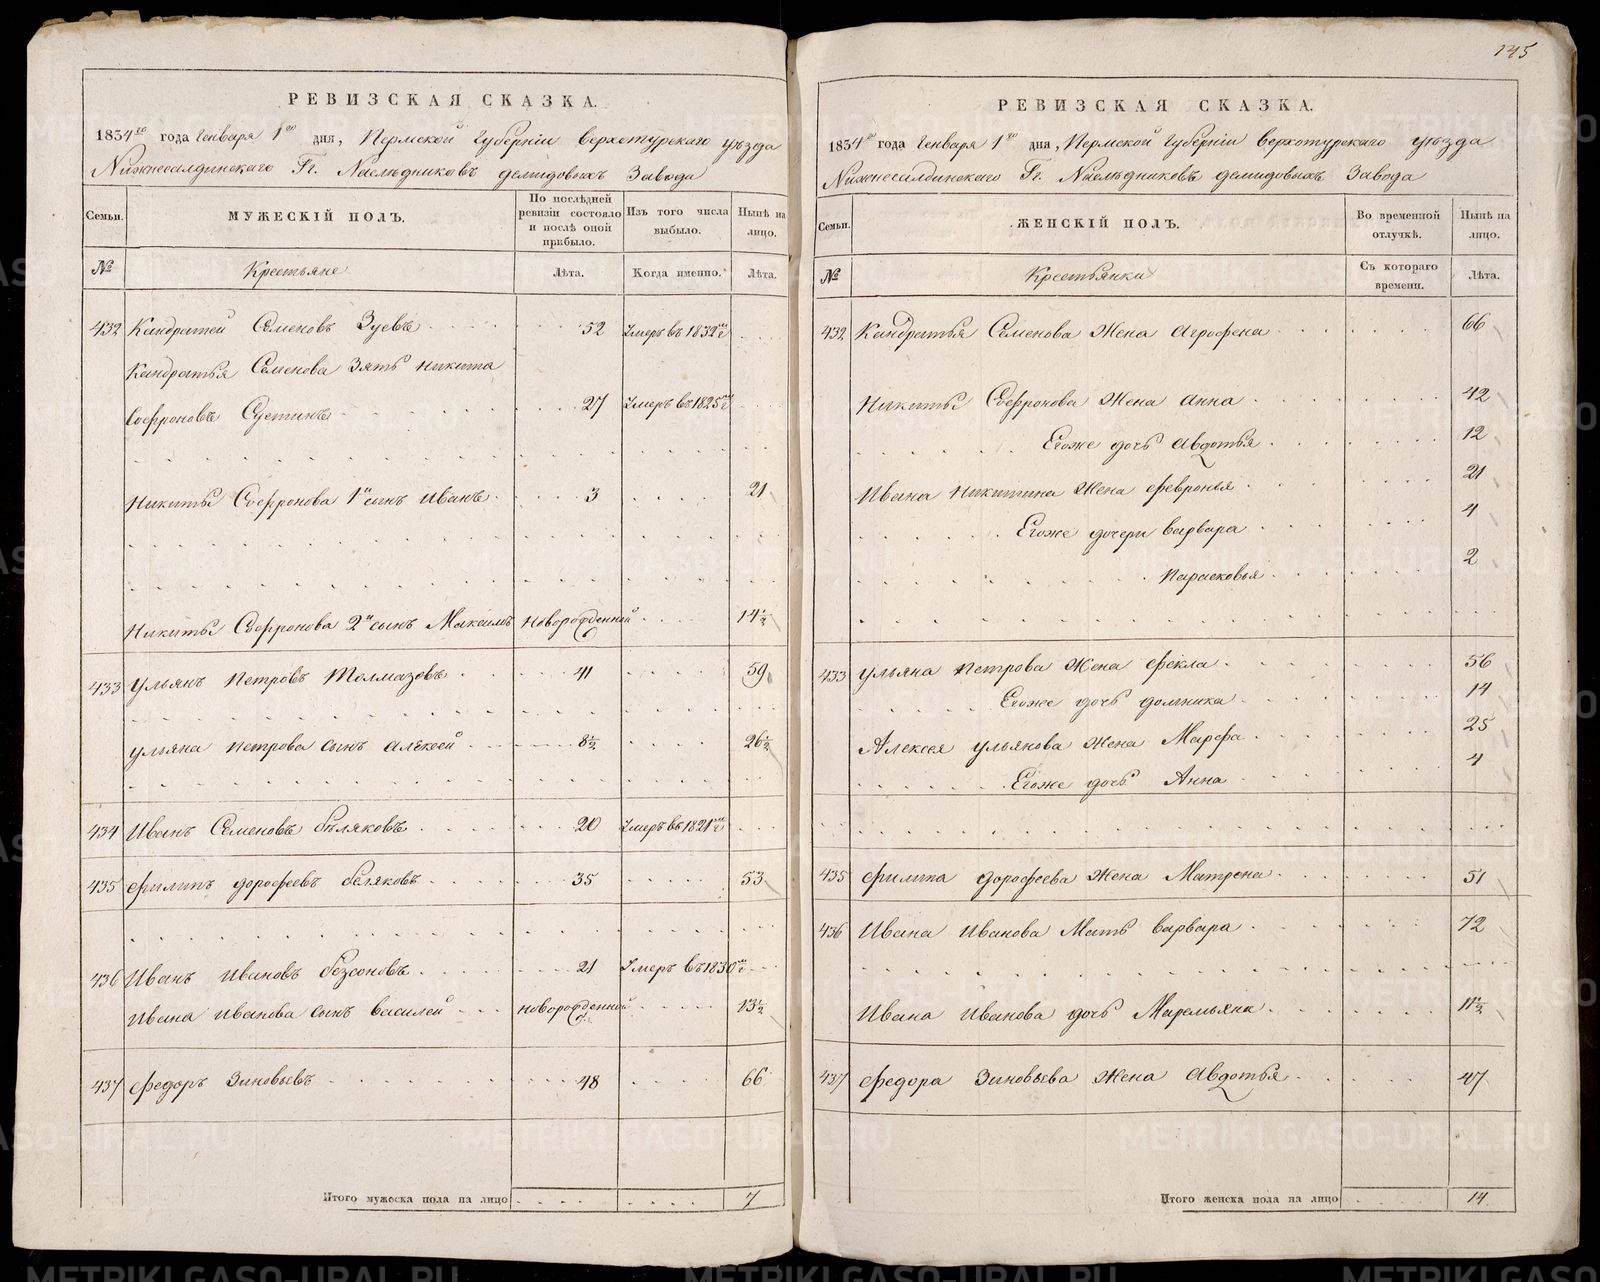 145
РЕВИЗСКАЯ СКАЗКА.
1834го года Генваря 1го дня, Пермской Губернии верхотурскаго уезда
Нижнесалдинскаго Гг. Наследниковъ демидовыхъ Завода
Семьи. МУЖЕСКІЙ ПОЛЪ. По послѣдней ревизіи состояло и послѣ оной прибыло. Изъ того числа выбыло. Нынѣ на лицо.
№ Крестьяне Лѣта. Когда именно. Лѣта.
432 Кандратей Семеновъ Зуевъ 52 Умеръ въ 1832мъ г
Кандратья Семенова Зять никита
Софроновъ Сустинъ 27 Умеръ въ 1825мъ г
Никиты Софронова 1й сынъ иванъ 3 21
Никиты Софронова 2й сынъ Максимъ новорожденной 14½
433 ульянъ петровъ толмазовъ 41 59
ульяна петрова сынъ алексей 8½ 26½
434 Иванъ Семеновъ беляковъ 20 Умеръ въ 1821мъ г
435 филипъ дорофеевъ беляковъ 35 53
436 Иванъ ивановъ безсоновъ 21 Умеръ въ 1830мъ г
Ивана иванова сынъ василей новорожденной 13½
437 федоръ зиновьевъ 48 66
Итого мужеска пола на лицо 7
РЕВИЗСКАЯ СКАЗКА.
1834го года Генваря 1го дня, Пермской Губернии верхотурскаго уезда
Нижнесалдинскаго Гг. Наследниковъ демидовыхъ Завода
Семьи. ЖЕНСКІЙ ПОЛЪ. Во временной отлучкѣ. Нынѣ на лицо.
№ Крестьянки Съ котораго времени. Лѣта.
432 Кандратья Семенова жена агрофена 66
Никиты Софронова жена анна 42
Егоже дочь авдотья 12
Ивана никитина жена февронья 21
Егоже дочери варвара 4
парасковья 2
433 ульяна петрова жена фекла 56
Егоже дочь домника 14
Алексея ульянова жена Марфа 25
Егоже дочь Анна 4
435 филипа дорофеева жена Матрена 51
436 Ивана иванова Мать варвара 72
Ивана иванова дочь Маремьяна 11½
437 федора зиновьева жена авдотья 47
Итого женска пола на лицо 14
METRIKI.GASO-URAL.RU